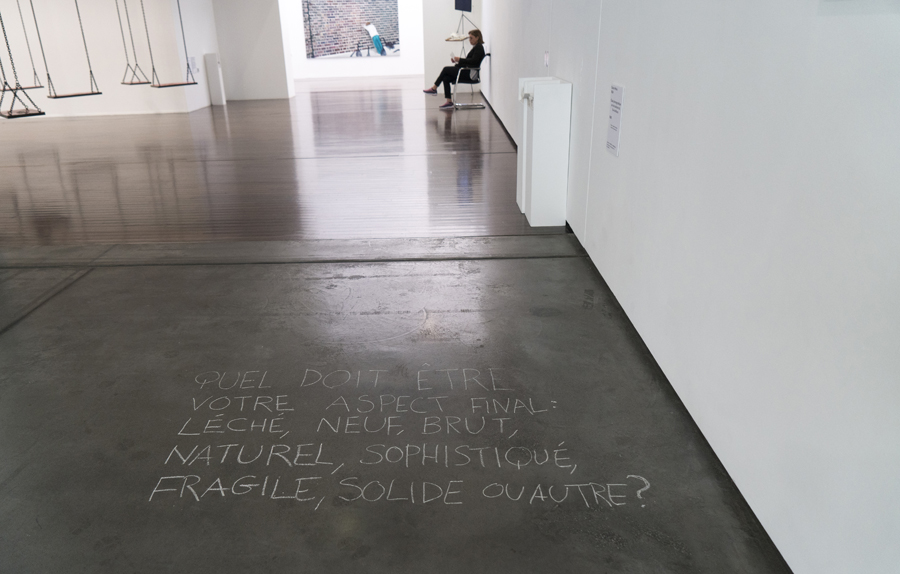 QUEL DOIT ÊTRE
VOTRE ASPECT FINAL:
LÉCHÉ, NEUF, BRUT,
NATUREL, SOPHISTIQUÉ,
FRAGILE, SOLIDE OU AUTRE?